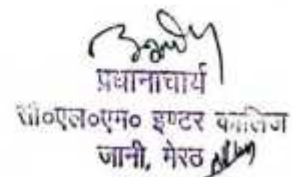 प्रधानाचार्य
सी०एल०एम० इण्टर कालिज
जानी, मेरठ